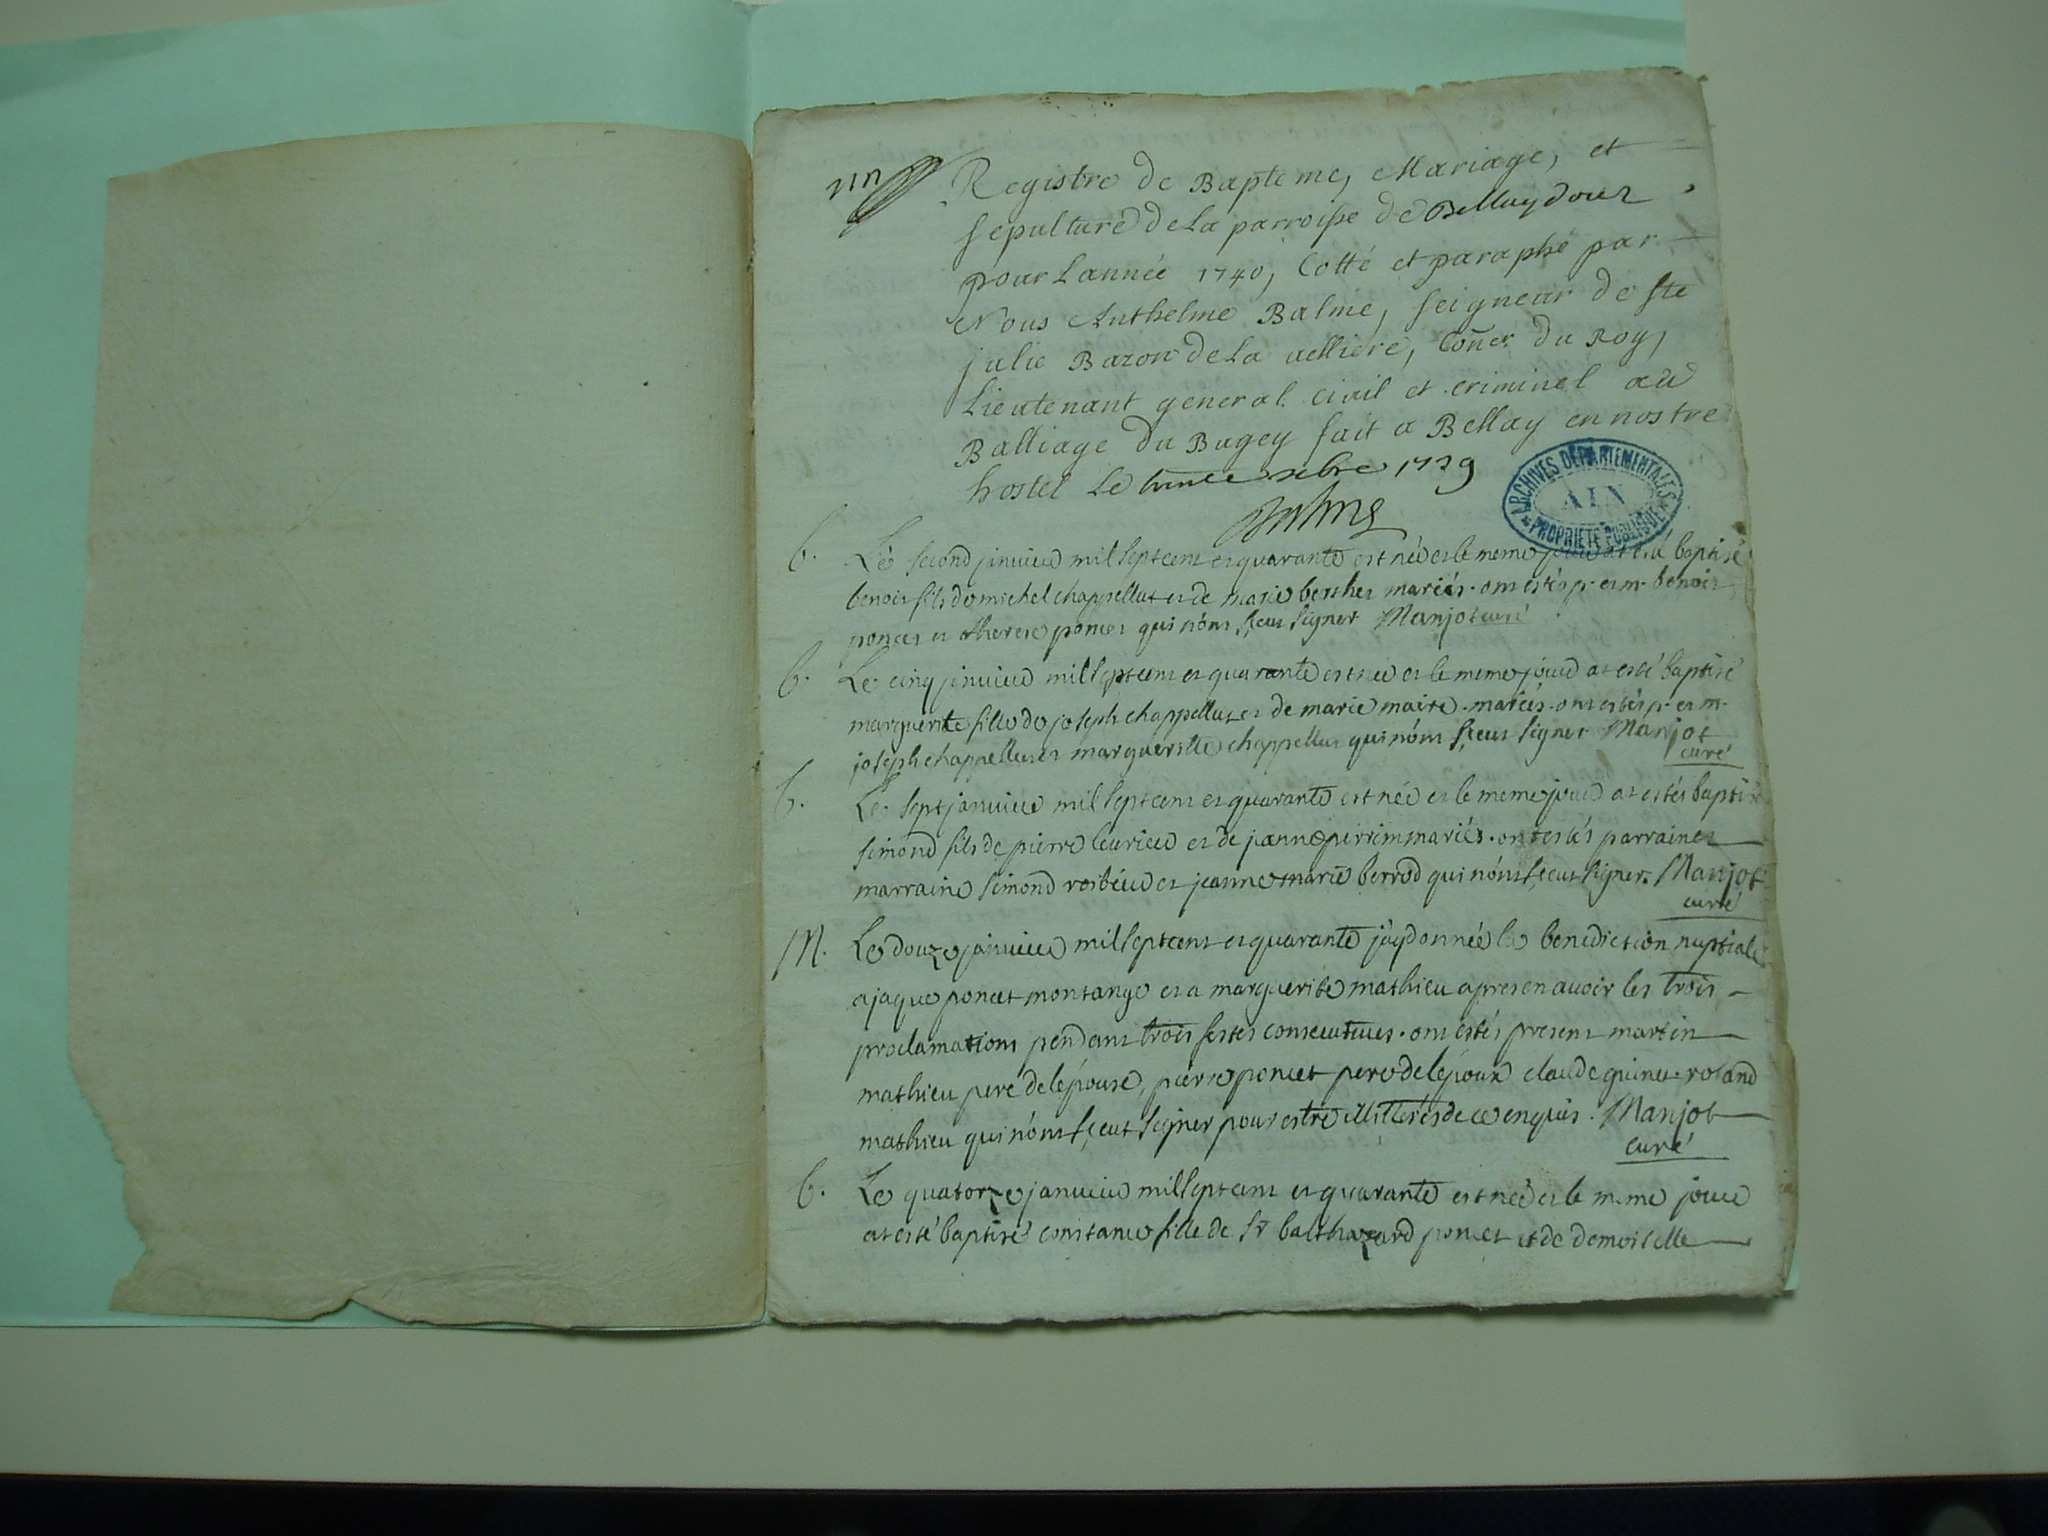 Registre de Bapteme, Mariage, et
sepulture de La parroisse de Belluydoux
pour Lannée 1740, Cotté et paraphé par
Nous Anthelme Balme, seigneur de ste
julie Baron de La velliere, Coner du Roy,
Lieutenant general civil et criminel au
Balliage du Bugey fait a Bellay en nostre
hostel Le xbre 1739
Balme
ARCHIVES DÉPARTEMENTALES
AIN
PROPRIÉTÉ PUBLIQUE
b. Le second janvier mil sept cent et quarante est née et le meme jour at esté baptisé
benoit fils de michel chappellut et de marie berther mariés. ont estés p. et m. benoit
poncet et therese poncet qui n'ónt sceut signer Manjot curé
b. Le cinq janvier mil sept cent et quarante est née et le meme jour at esté baptisé
marguerite fille de joseph chappellut et de marie maire. mariés. ont estés p. et m.
joseph chappellut et margueritte chappellut qui n'ónt sceut signer Manjot
curé
b. Le sept janvier mil sept cent et quarante est née et le meme jour at estés baptisé
simond fils de pierre leurieu et de jeanne perrin mariés. ont estés parrain et
marraine simond et jeanne marie berrod qui n'ónt sceut signer. Manjot
curé
M. Le douze janvier mil sept cent et quarante j'ay donnée la benediction nuptiale
a jaque poncet montange et a marguerite mathieu apres en avoir les trois
proclamations pendant trois festes consecutives. ont estés present martin
mathieu pere de lépouse, pierre poncet pere de lépoux claude roland
mathieu qui n'ónt sceut signer pour estre illitterés de ce enquis. Manjot
curé
b. Le quatorze janvier mil sept cent et quarante est née et le meme jour
at esté baptisé constance fille de Sr balthazard poncet et de demoiselle